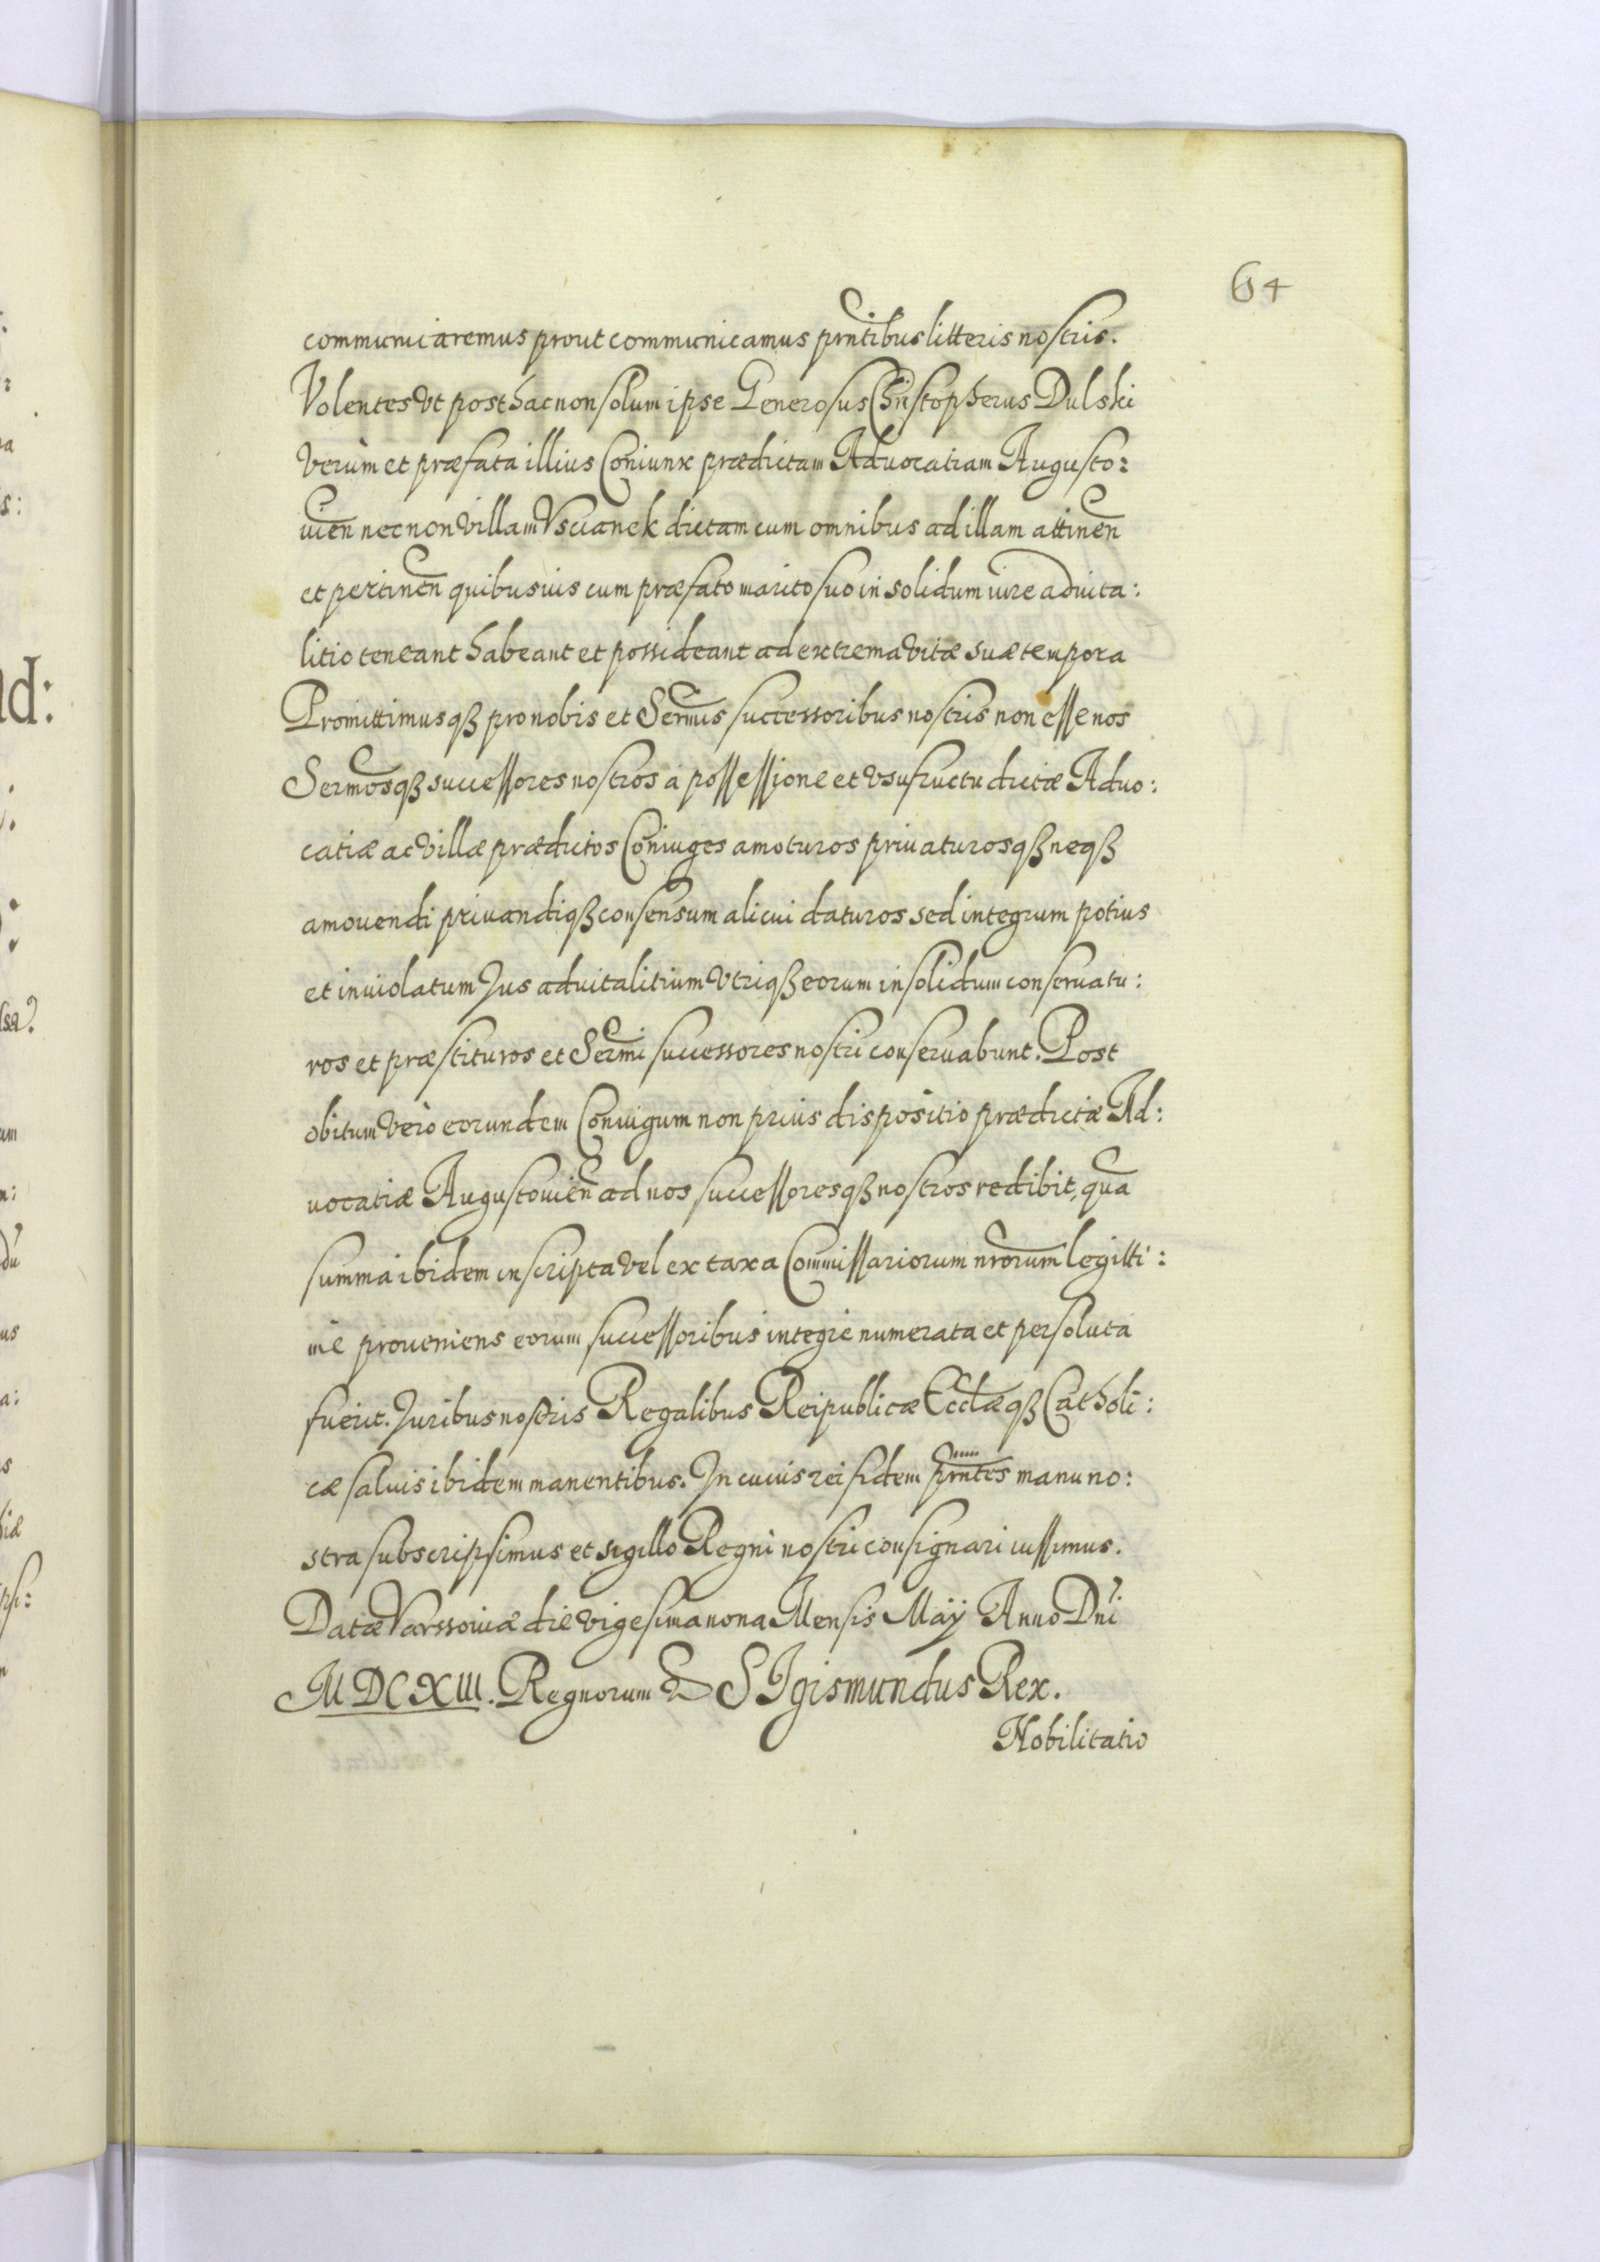 64
communicaremus prout communicamus pr̃ntibus litteris nostris.
Volentes vt posthac non solum ipse Generosus Christopherus Dulski
verùm et præfata illius Coniunx prædictam Advocatiam Augusto:
uien̄ necnon villam Vscianek dictam cum omnibus ad illam attinen̄
et pertinen̄ quibusuis cum præfato marito suo in solidum iure aduita:
litio teneant habeant et possideant ad extrema vitæ suæ tempora
Promittimusqꝫ pro nobis et Serm̄is successoribus nostris non esse nos
Serm̄osqꝫ successores nostros à possessione et vsufructu dictæ Aduo:
catiæ ac villæ prædictos Coniuges amoturos priuaturosqꝫ neqꝫ
amouendi priuandiqꝫ consensum alicui daturos sed integrum potius
et inuiolatum Jus aduitalitium vtriqꝫ eorum in solidum conseruatu:
ros et præstituros et Serm̄i successores nostri conseruabunt. Post
obitum verò eorundem Coniugum non prius dispositio prædictæ Ad:
uocatiæ Augustouien̄ ad nos successoresqꝫ nostros redibit, qua͂
summa ibidem inscripta vel ex taxa Commissariorum nr̄orum legitti:
mè proueniens eorum successoribus integrè numerata et persoluta
fuerit. Juribus nostris Regalibus Reipublicæ Eccl̄æqꝫ Catholi:
cæ saluis ibidem manentibus. In cuius rei fidem pr̃ntes manu no:
stra subscripsimus et sigillo Regni nostri consignari iussimus.
Datæ Varssouiæ die vigesima nona Mensis Maÿ Anno Dn̄i
MDCXIII. Regnorum & SIgismundus Rex.
Nobilitatio